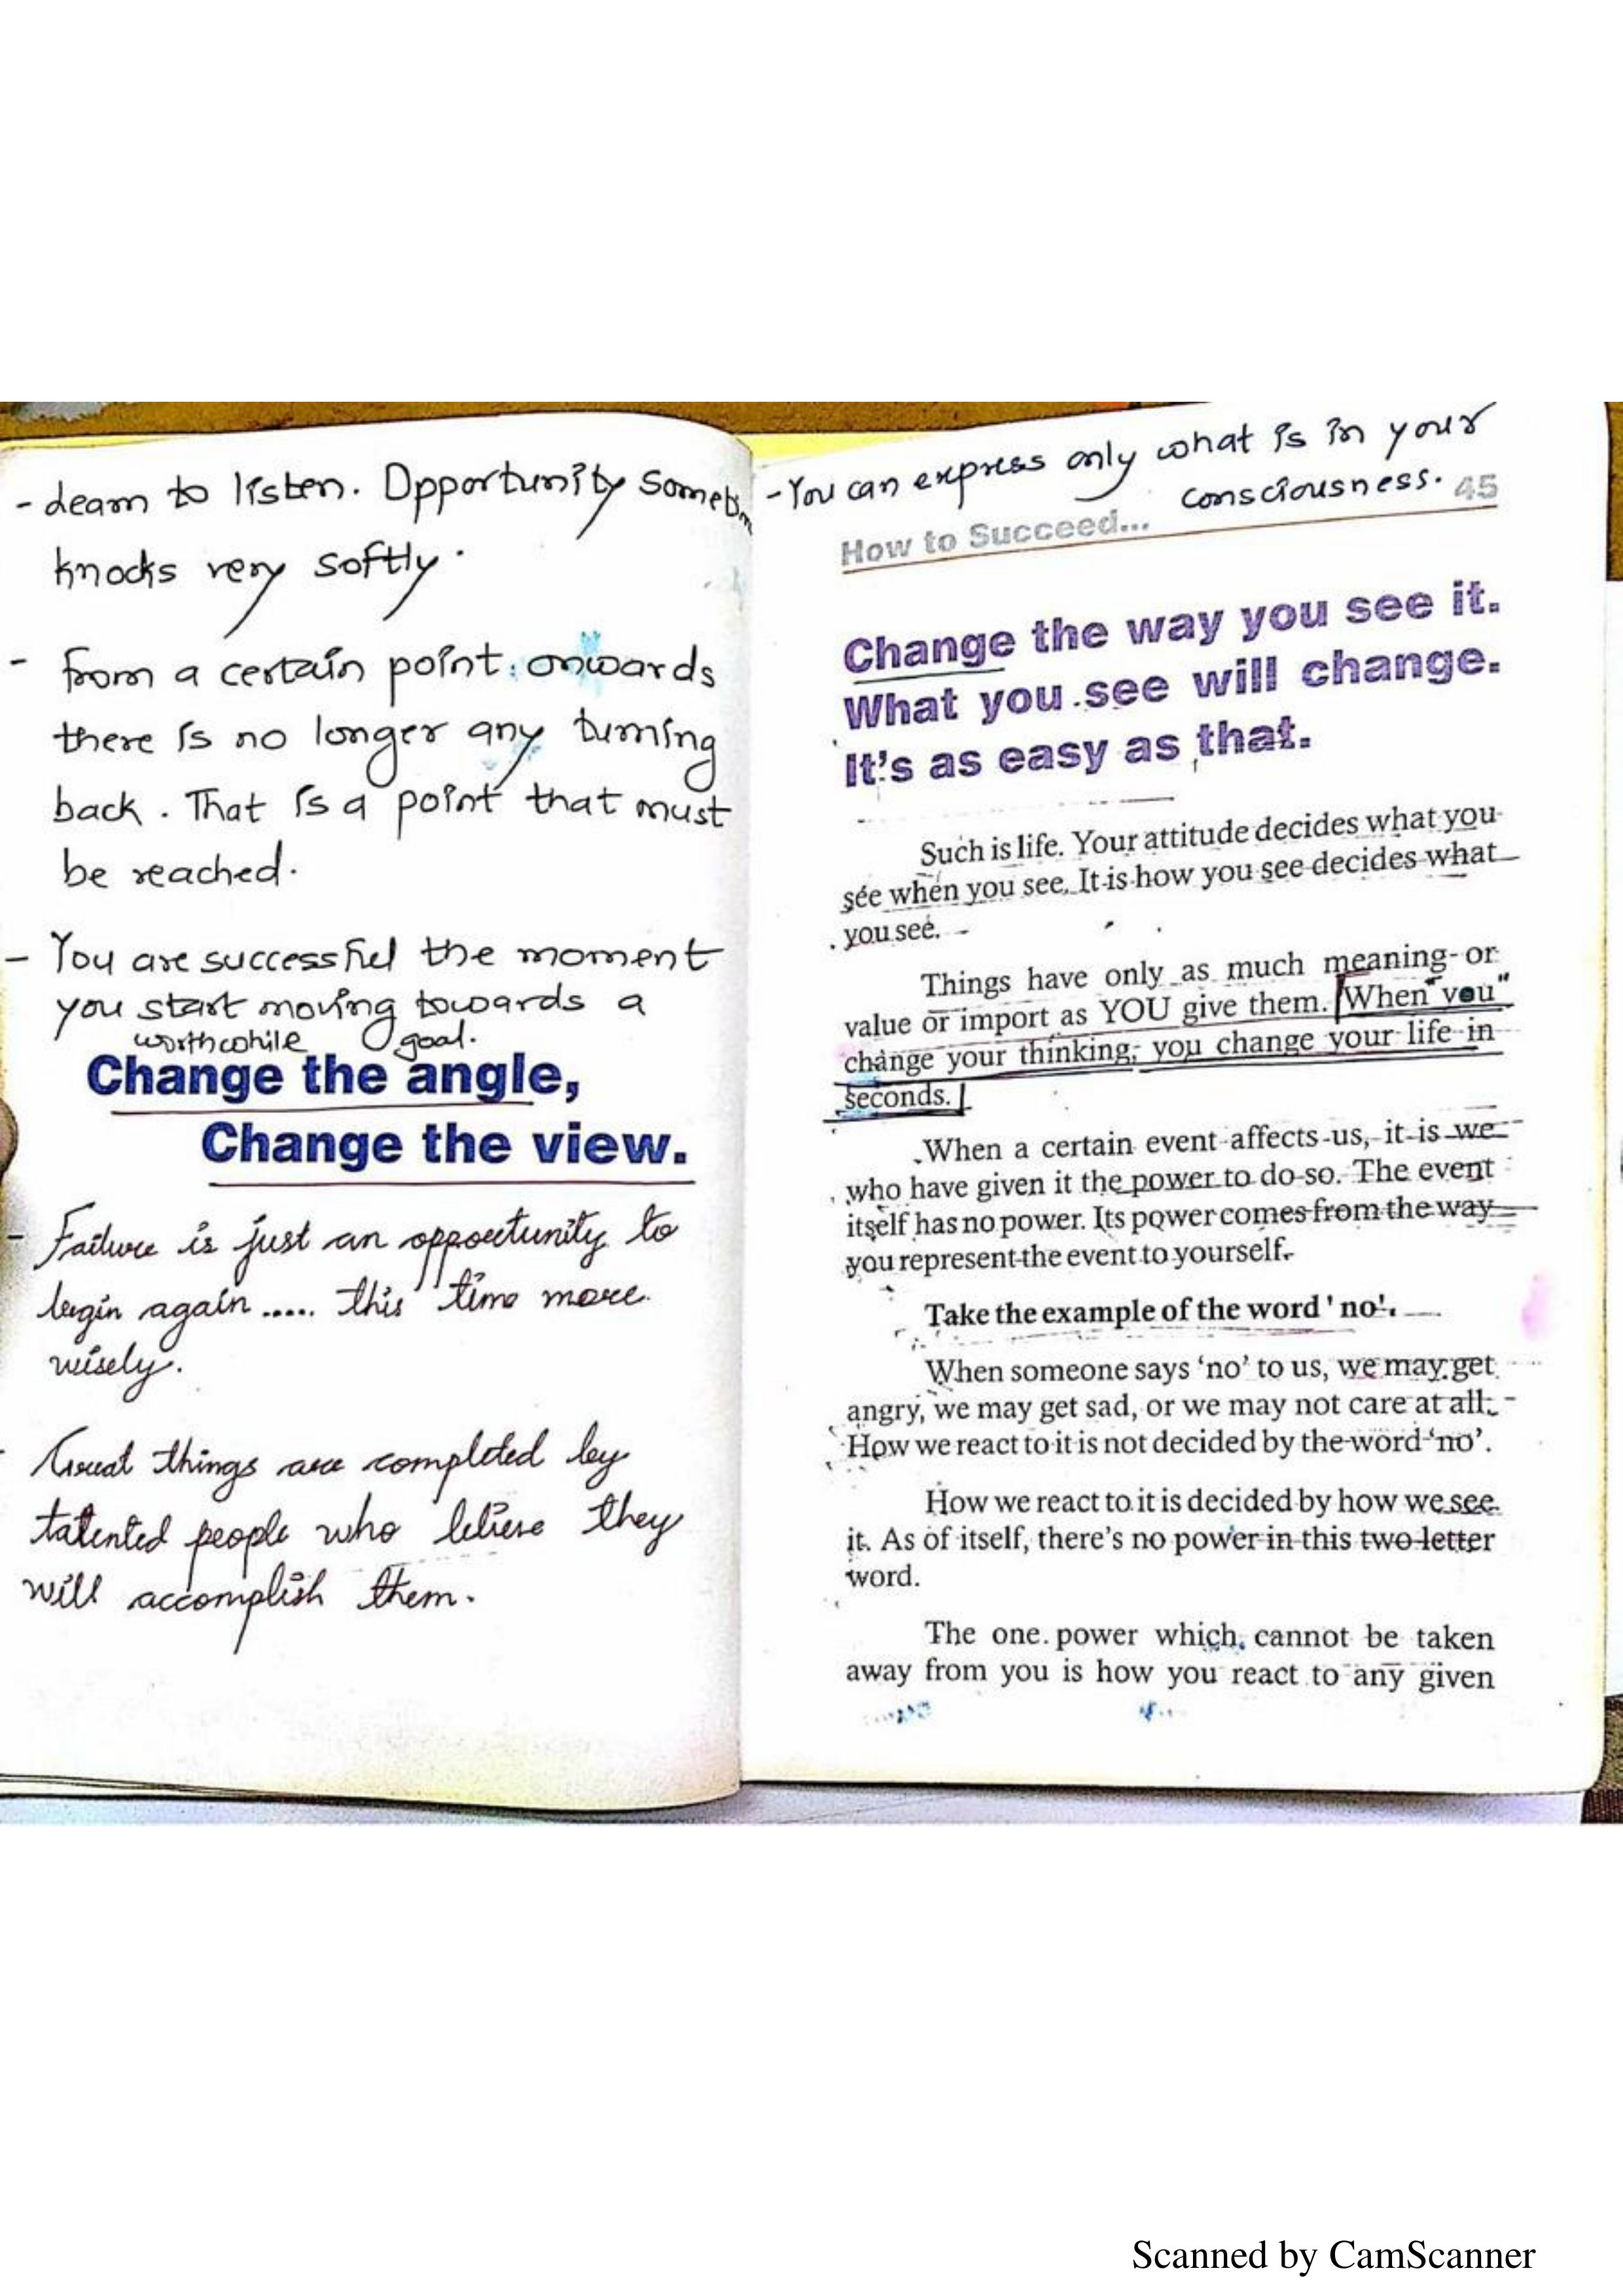 - Learn to listen. Opportunity Sometim
knocks very softly.
- From a certain point onwards
there is no longer any turning
back. That is a point that must
be reached.
- You are successful the moment
you start moving towards a
worthwhile goal.
Change the angle,
Change the view.
- Failure is just an opportunity to
begin again ..... this time more
wisely.
- Great things are completed by
talented people who believe they
will accomplish them.
- You can express only what is in your
consciousness.
45
How to Succeed...
Change the way you see it.
What you see will change.
It's as easy as that.
Such is life. Your attitude decides what you
see when you see. It is how you see decides what
you see.
Things have only as much meaning or
value or import as YOU give them. When "you"
change your thinking; you change your life in
seconds.
When a certain event affects us, it is we
who have given it the power to do so. The event
itself has no power. Its power comes from the way
you represent the event to yourself.
Take the example of the word 'no'.
When someone says 'no' to us, we may get
angry, we may get sad, or we may not care at all.
How we react to it is not decided by the word 'no'.
How we react to it is decided by how we see
it. As of itself, there's no power in this two letter
word.
The one power which cannot be taken
away from you is how you react to any given
Scanned by CamScanner